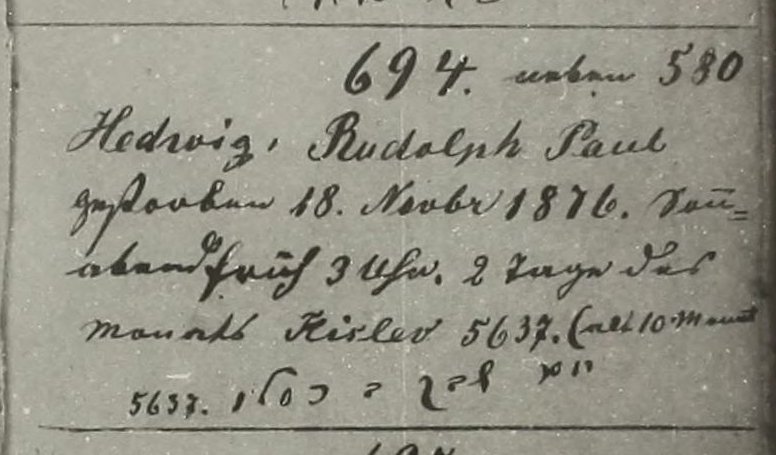 694. neben 580
Hedwig, Rudolph Paul
gestorben 18. Novbr 1876. Son̄=
abend früh 3 Uhr. 2 Tage des
Monats Kislev 5637. (alt 10 Monat
כסלו 5637.